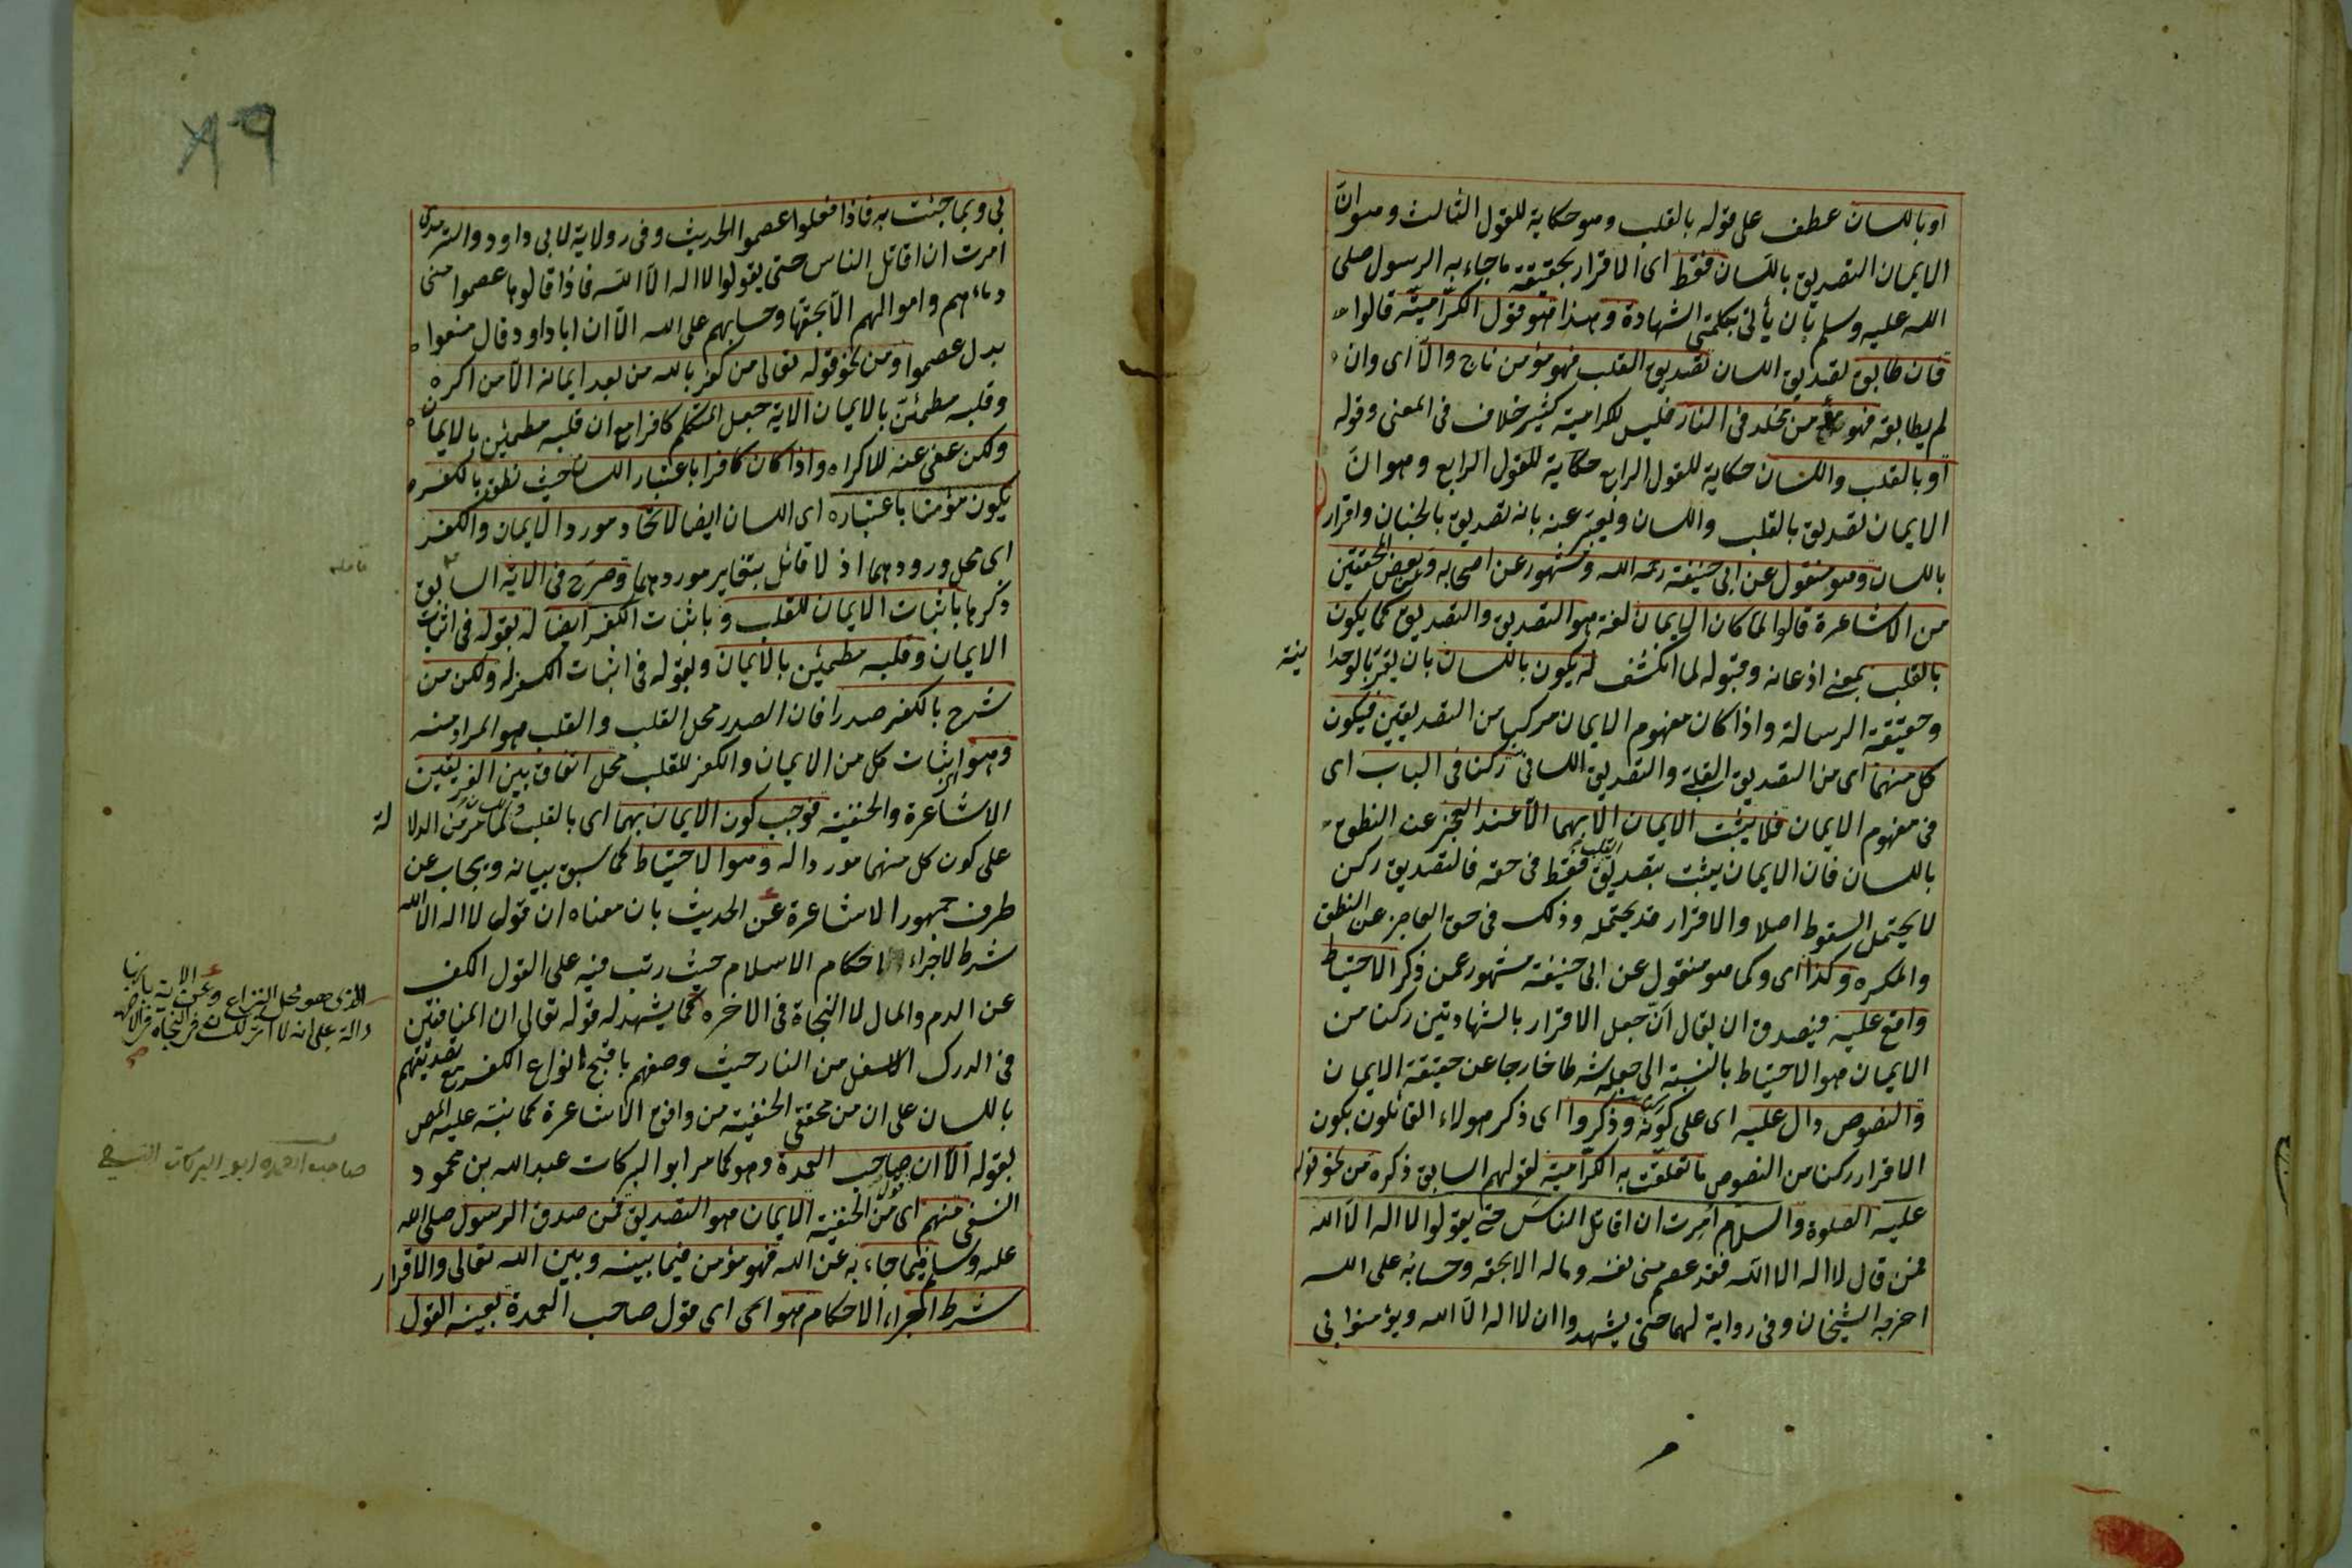 او باللسان عطف على قوله بالقلب وهو حكاية للقول الثالث وهو ان
الايمان التصديق باللسان فقط اى الاقرار بحقيقة ما جاء به الرسول صلى
الله عليه وسلم بان يأتى بكلمتى الشهادة وهذا هو قول الكرّامية قالوا
فان طابق تصديق اللسان تصديق القلب فهو مؤمن ناج والّا اى وان
لم يطابقه فهو مؤمن مخلد فى النار فليس للكرامية كثير خلاف فى المعنى وقوله
او بالقلب واللسان حكاية للقول الرابع حكاية للقول الرابع وهو انّ
الايمان تصديق بالقلب واللسان ويعبّر عنه بانه تصديق بالجنان واقرار
باللسان وهو منقول عن ابى حنيفة رحمه الله ومشهور عن اصحابه وعن بعض المحققين
من الاشاعرة قالوا لما كان الايمان لغة هو التصديق والتصديق كما يكون
بالقلب بمعنى اذعانه وقبوله لما انكشف له يكون باللسان بان يقرّ بالوحدا نية
وحقيقة الرسالة واذا كان مفهوم الايمان مركبا من التصديقين فيكون
كل منهما اى من التصديق القلبى والتصديق اللسانى ركنا فى الباب اى
فى مفهوم الايمان فلا يثبت الايمان الا بهما الّا عند العجز عن النطق
باللسان فان الايمان يثبت بتصديق القلب فقط فى حقه فالتصديق ركن
لا يحتمل السقوط اصلا والاقرار قد يحتمله وذلك فى حق العاجز عن النطق
والمكره وكذا اى وكما هو منقول عن ابى حنيفة مشهور عمن ذكر الاحتياط
واقع عليه فيصدق ان يقال انّ جعل الاقرار بالشهادتين ركنا من
الايمان هو الاحتياط بالنسبة الى جعله شرطا خارجا عن حقيقة الايمان
والنصوص دال عليه اى على كونه ركنا وذكروا اى ذكر هولاء القائلون بكون
الاقرار ركنا من النصوص ما تعلقت به الكرّامية لقولهم السابق ذكره من نحو قوله
عليه الصلوة والسلام امرت ان اقاتل الناس حتى يقولوا لا اله الا الله
فمن قال لا اله الا الله فقد عصم منى نفسه وماله الا بحقه وحسابه على الله
اخرجه الشيخان وفى رواية لهما حتى يشهدوا ان لا اله الّا الله ويؤمنوا بى
٨٩
بى وبما جئت به فاذا فعلوا عصموا الحديث وفى رولاية لابى داود والترمذى
امرت ان اقاتل الناس حتى يقولوا لا اله الّا الله فاذا قالوها عصموا منى
دماءهم واموالهم الّا بحقها وحسابهم على الله الّا ان ابا داود قال منعوا
بدل عصموا ومن نحو قوله تعالى من كفر بالله من بعد ايمانه الّا من اكره
وقلبه مطمئنّ بالايمان الاية جعل المتكلم كافرا مع ان قلبه مطمئن بالايمان
ولكن عفى عنه للاكراه واذا كان كافرا باعتبار اللسان حيث نطق بالكفر
يكون مؤمنا باعتباره اى اللسان ايضا لاتحاد مورد الايمان والكفر
اى محل ورودهما اذ لا قائل بتغاير موردهما وصرّح فى الاية السابق
ذكرها باثبات الايمان للقلب وباثبات الكفر ايضا له بقوله فى اثبات
الايمان وقلبه مطمئن بالايمان وبقوله فى اثبات الكفر له ولكن من
شرح بالكفر صدرا فان الصدر محل القلب والقلب هو المراد منه
وهو اثبات كل من الايمان والكفر للقلب محل اتفاق بين الفريقين
الاشاعرة والحنفية فوجب كون الايمان بهما اى بالقلب واللسان لما مرّ من الدلا لة
على كون كل منهما موردا له وهو الاحتياط كما سبق بيانه ويجاب عن
طرف جمهور الاشاعرة عن الحديث بان معناه ان قول لا اله الا الله
شرط لاجراء احكام الاسلام حيث رتب فيه على القول الكف
عن الدم والمال لا النجاة فى الاخره كما يشهد له قوله تعالى ان المنافقين
فى الدرك الاسفل من النار حيث وصفهم باقبح انواع الكفر مع تصديقهم
باللسان على ان من محققى الحنفية من وافق الاشاعرة كما نبّه عليه المص
بقوله الّا ان صاحب العمدة وهو كما مر ابو البركات عبد الله بن محمود
النسفى منهم اى من الحنفية قال الايمان هو التصديق فمن صدق الرسول صلى الله
عليه وسلم فيما جاء به عن الله فهو مؤمن فيما بينه وبين الله تعالى والاقرار
شرط اجراء الاحكام هو اى اى قول صاحب العمدة بعينه القول
الذى هو محل النزاع وعن الاية بانها
دالة على انه لا اثر للسان فى النجاة فى الاخرة
صاحب العمدة ابو البركات النسفى